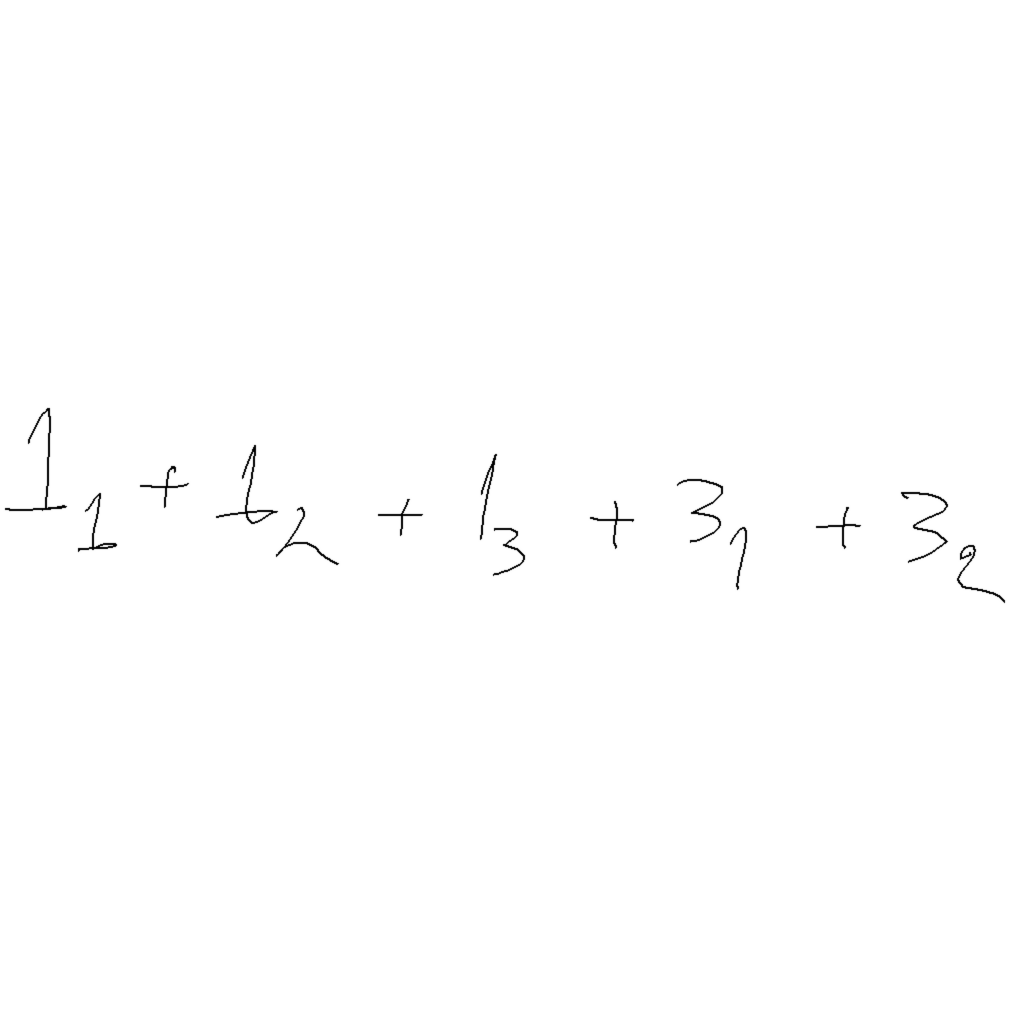 1₁ + 1₂ + 1₃ + 3₁ + 3₂